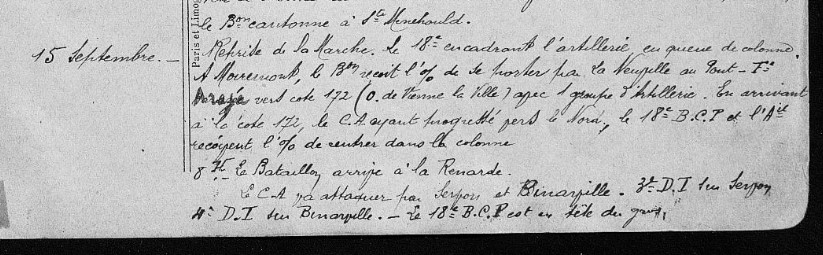 le Bon cantonne à Ste Menehould.
15 Septembre. — Reprise de la Marche. Le 18e encadrant l'artillerie, en queue de colonne.
A Mouremont, le Bon reçoit l'O/ de se porter par La Neuville au Pont - Fme
Araja vers cote 172 (O. de Vienne la Ville) avec 1 groupe d'Artillerie. En arrivant
à la cote 172, le C.A ayant progressé vers le Nord, le 18e B.C.P et l'Aie
reçoivent l'O/ de rentrer dans la colonne
8 H. Le Bataillon arrive à la Renarde.
Le C.A va attaquer par Servon et Binarville. 3e D.I sur Servon
4e D.I sur Binarville. — Le 18e B.C.P est en tête du gros,
Paris et Limo